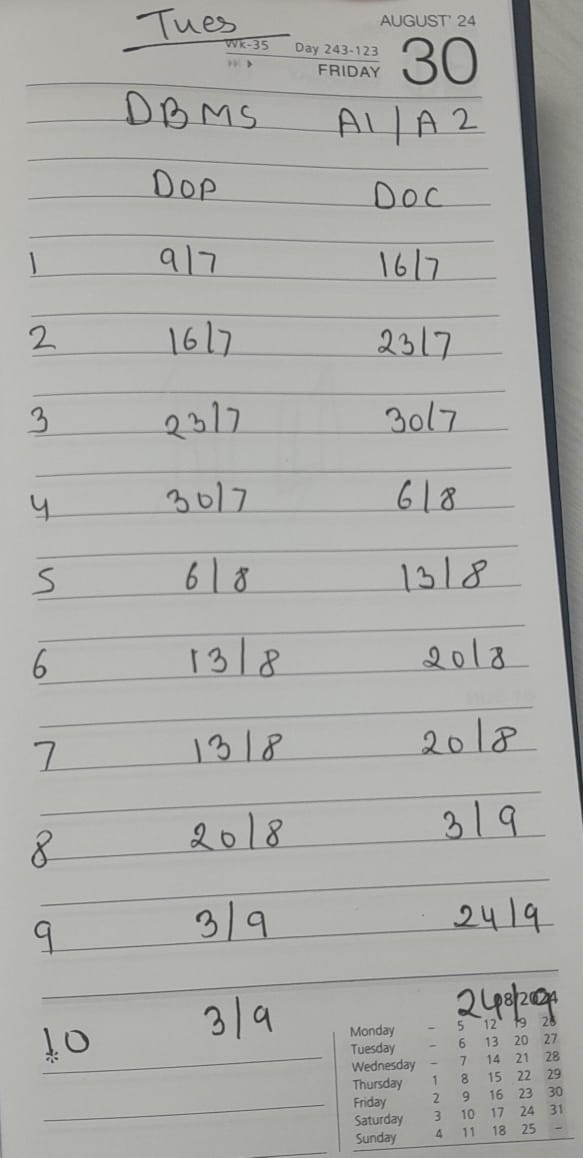 Tues
AUGUST' 24
Wk-35 Day 243-123
FRIDAY 30
DBMS A1/A2
DOP DOC
1 9/7 16/7
2 16/7 23/7
3 23/7 30/7
4 30/7 6/8
5 6/8 13/8
6 13/8 20/8
7 13/8 20/8
8 20/8 3/9
9 3/9 24/9
10 3/9 24/9
Monday – 5 12 19 26
Tuesday – 6 13 20 27
Wednesday – 7 14 21 28
Thursday 1 8 15 22 29
Friday 2 9 16 23 30
Saturday 3 10 17 24 31
Sunday 4 11 18 25 –